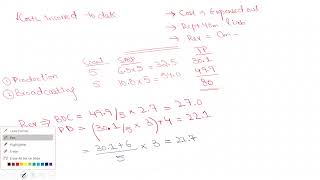 Costs incurred to date
→ Cost is Expensed out
→ Dept 40m & Liab
→ Rev = 0m -
Cost SASP TP
① Production 5 6.5×5 = 32.5 30.1
② Broadcasting 5 10.8×5 = 54.0 49.9
80
Rev → BDC = 49.9/5 × 2.7 = 27.0
PD = (30.1/5 × 3) + 4 = 22.1
= 30.1+6/5 × 3 = 21.7
Laser Pointer
Pen
Highlighter
Eraser